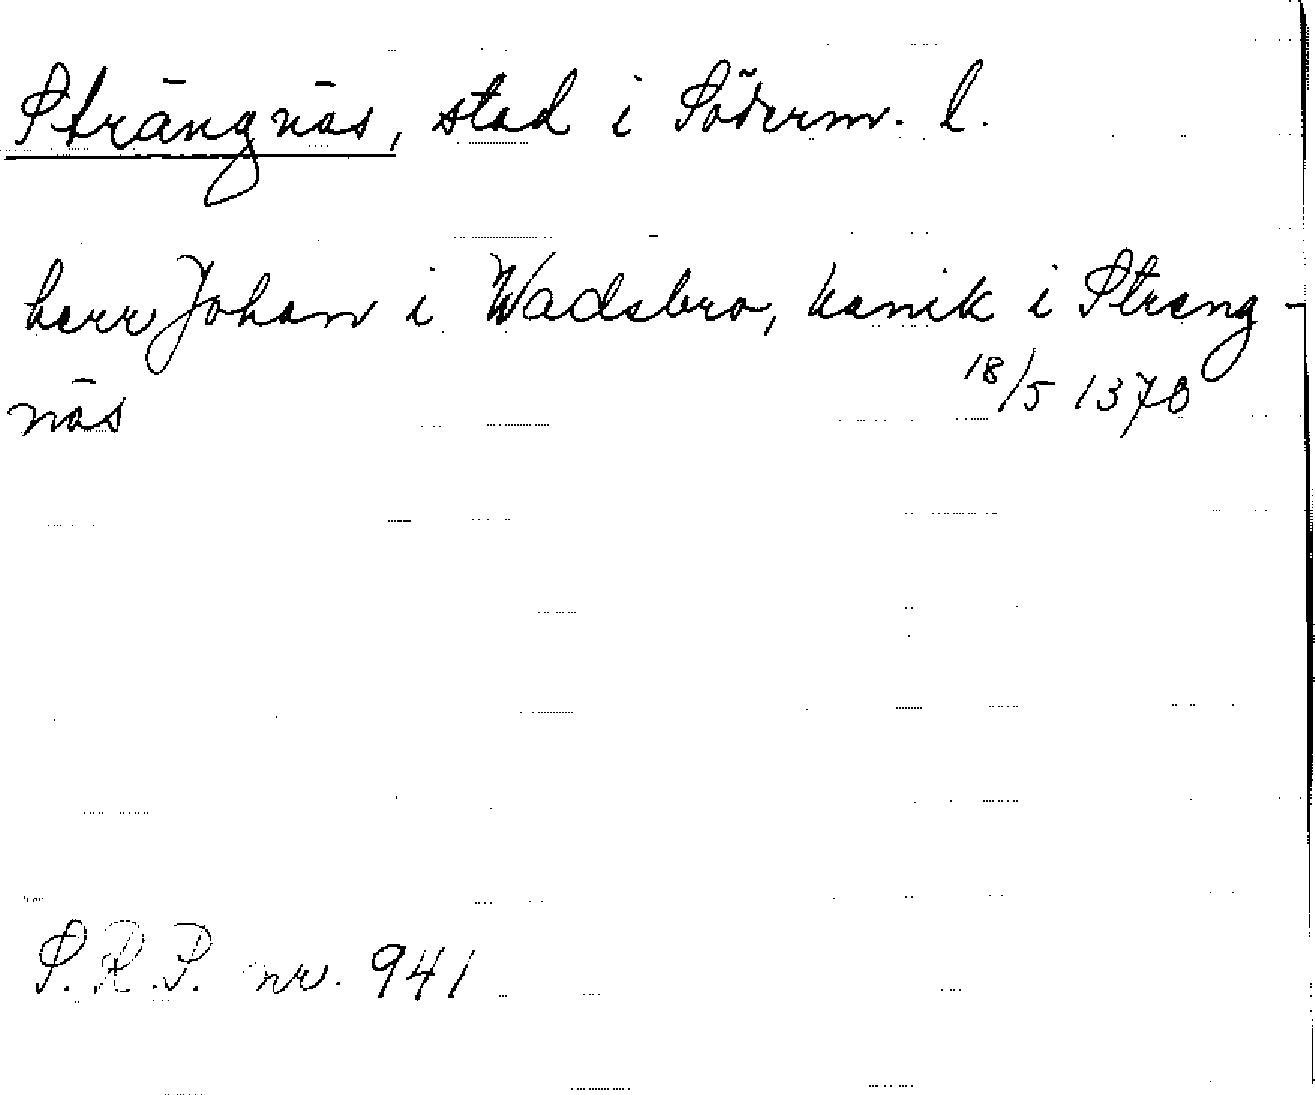 Strängnäs, stad i Söderm. l.
herr Johan i Wadsbro, kanik i Streng-
näs
18/5 1378
S.R.P. nr. 941